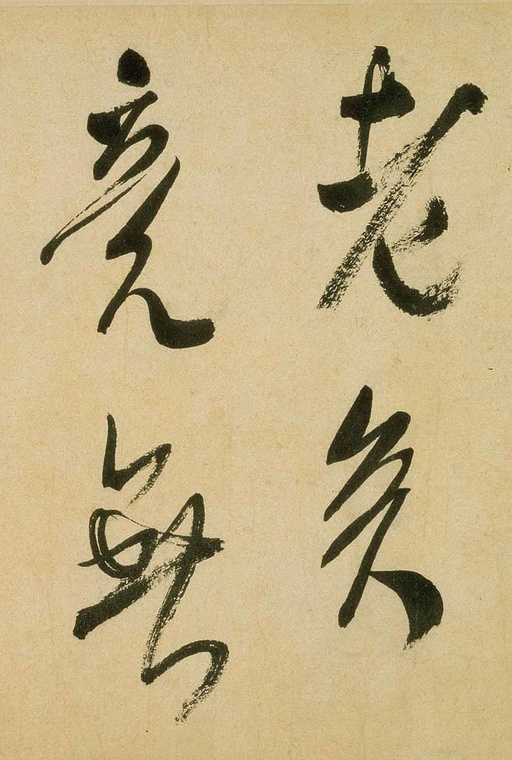 老矣
竟無